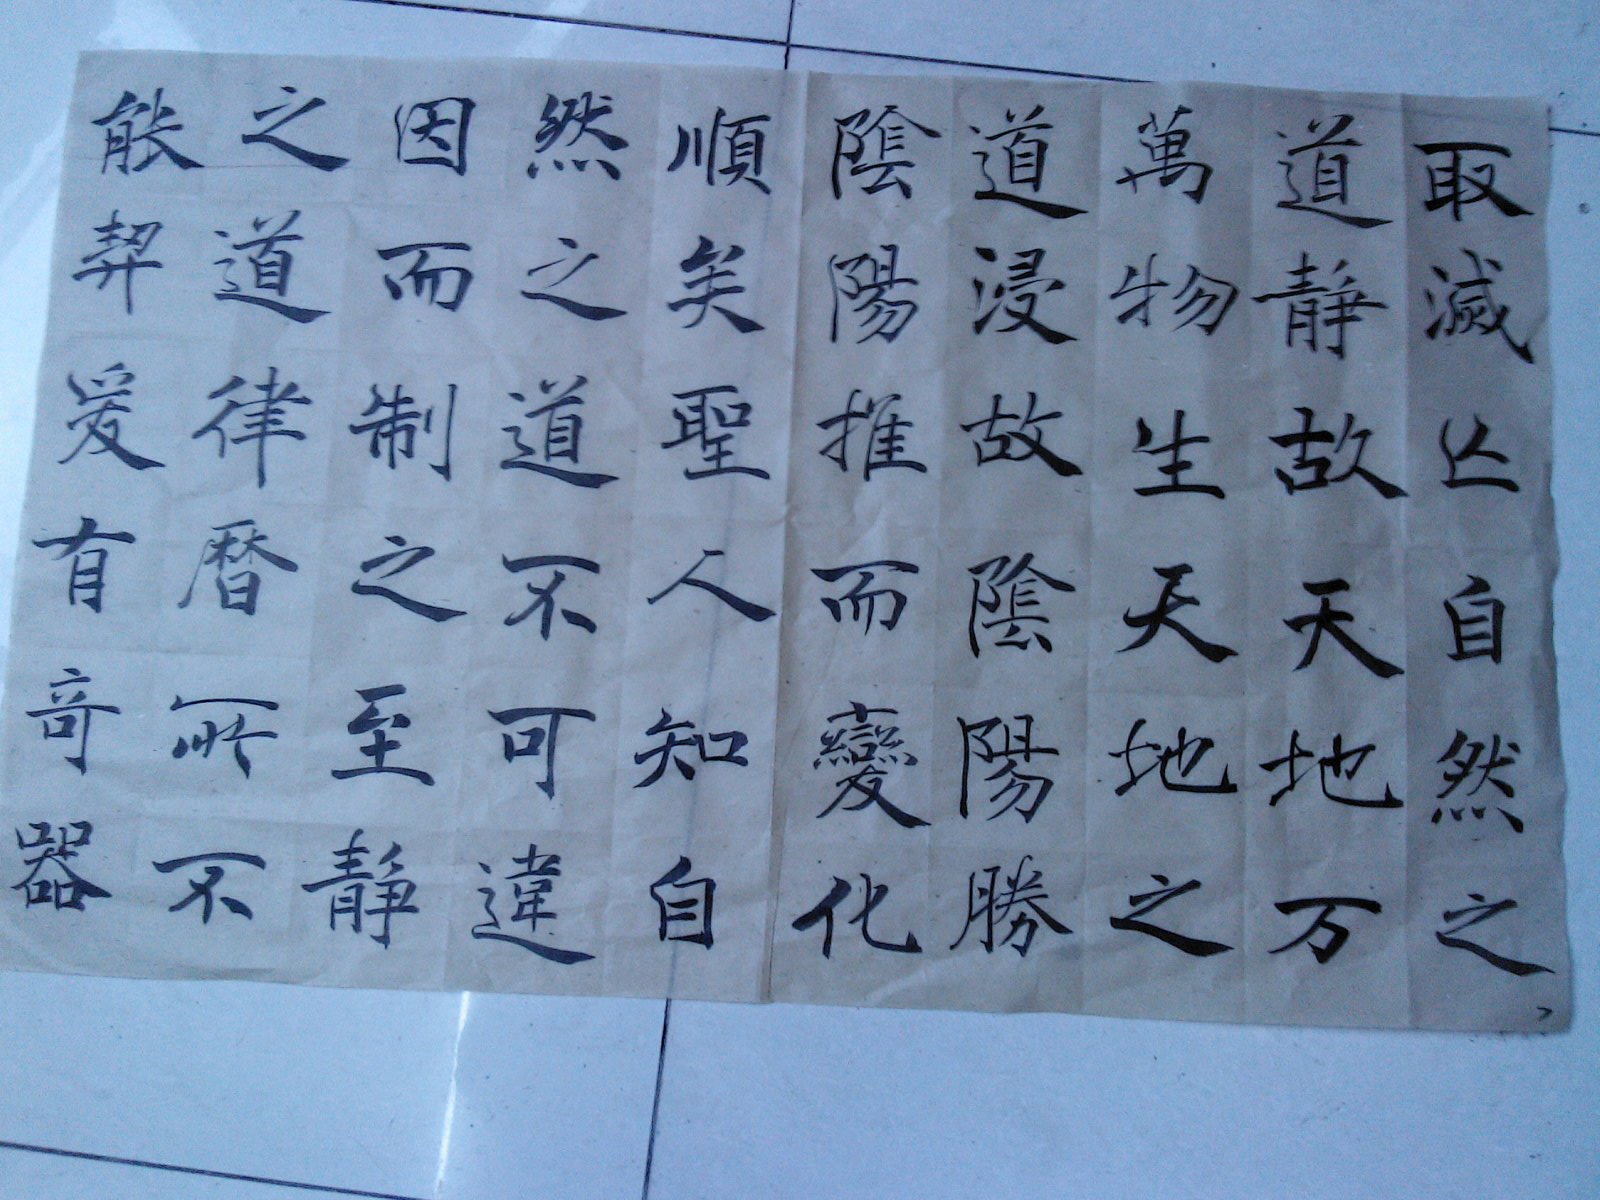 取滅亾自然之
道静故天地万
萬物生天地之
道浸故陰陽勝
陰陽推而變化
順矣聖人知自
然之道不可違
因而制之至静
之道律暦所不
能契爰有奇器